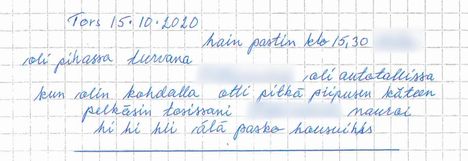 Tors 15.10.2020
hain pastin klo 15,30
oli pihassa turvana
oli autotallissa
kun olin kohdalla otti pitkä piipusen käteen
pelkäsin tosissani nauroi
hi hi hli älä pasko housuihis